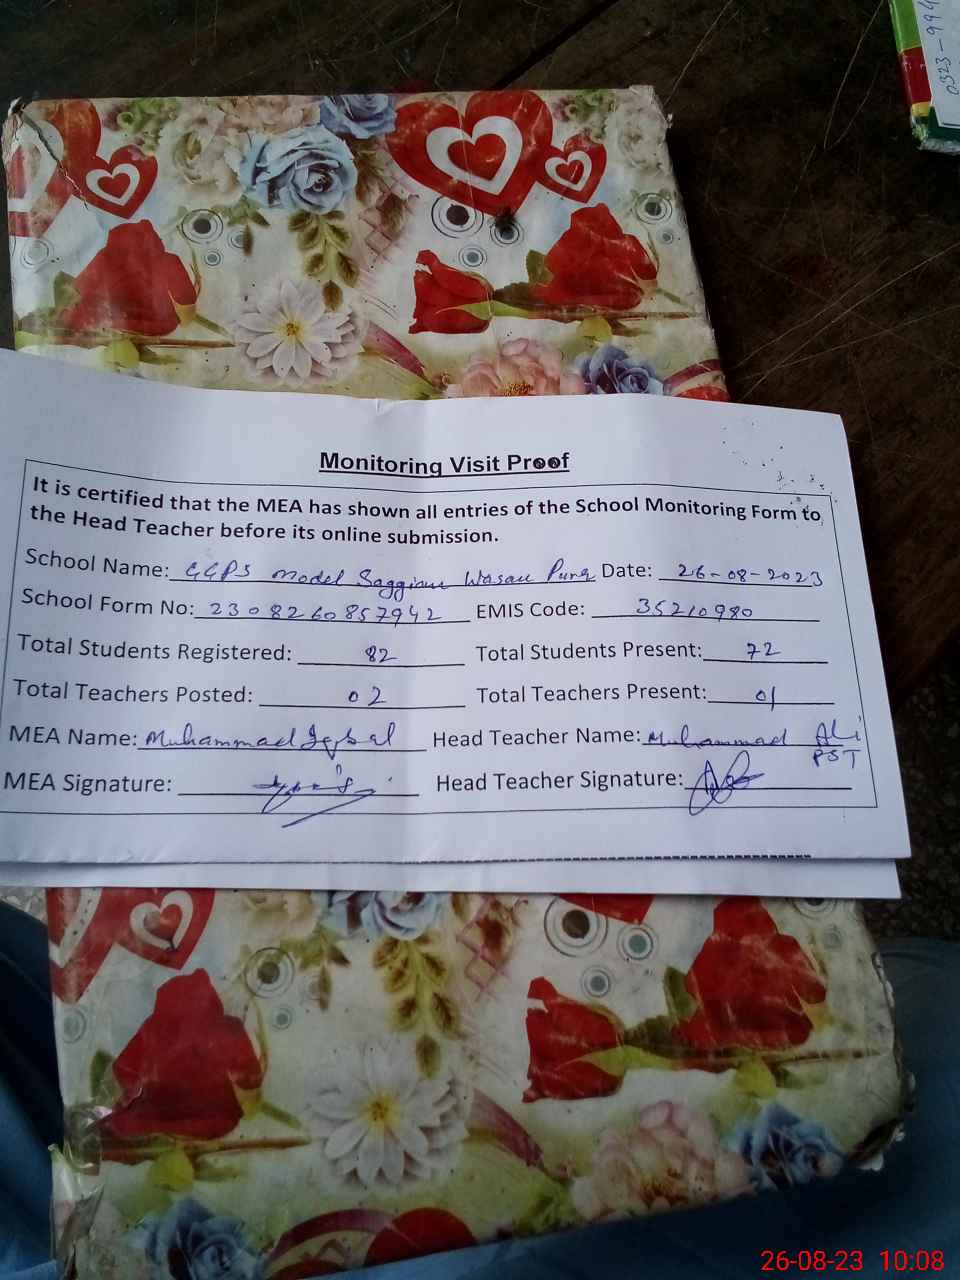 0323-994
Monitoring Visit Proof
It is certified that the MEA has shown all entries of the School Monitoring Form to
the Head Teacher before its online submission.
School Name: GGPS Model Saggian Wasan Pura Date: 26-08-2023
School Form No: 2308260857942 EMIS Code: 35210980
Total Students Registered: 82 Total Students Present: 72
Total Teachers Posted: 02 Total Teachers Present: 01
MEA Name: Muhammad Iqbal Head Teacher Name: Muhammad Ali
PST
MEA Signature: Head Teacher Signature:
26-08-23 10:08